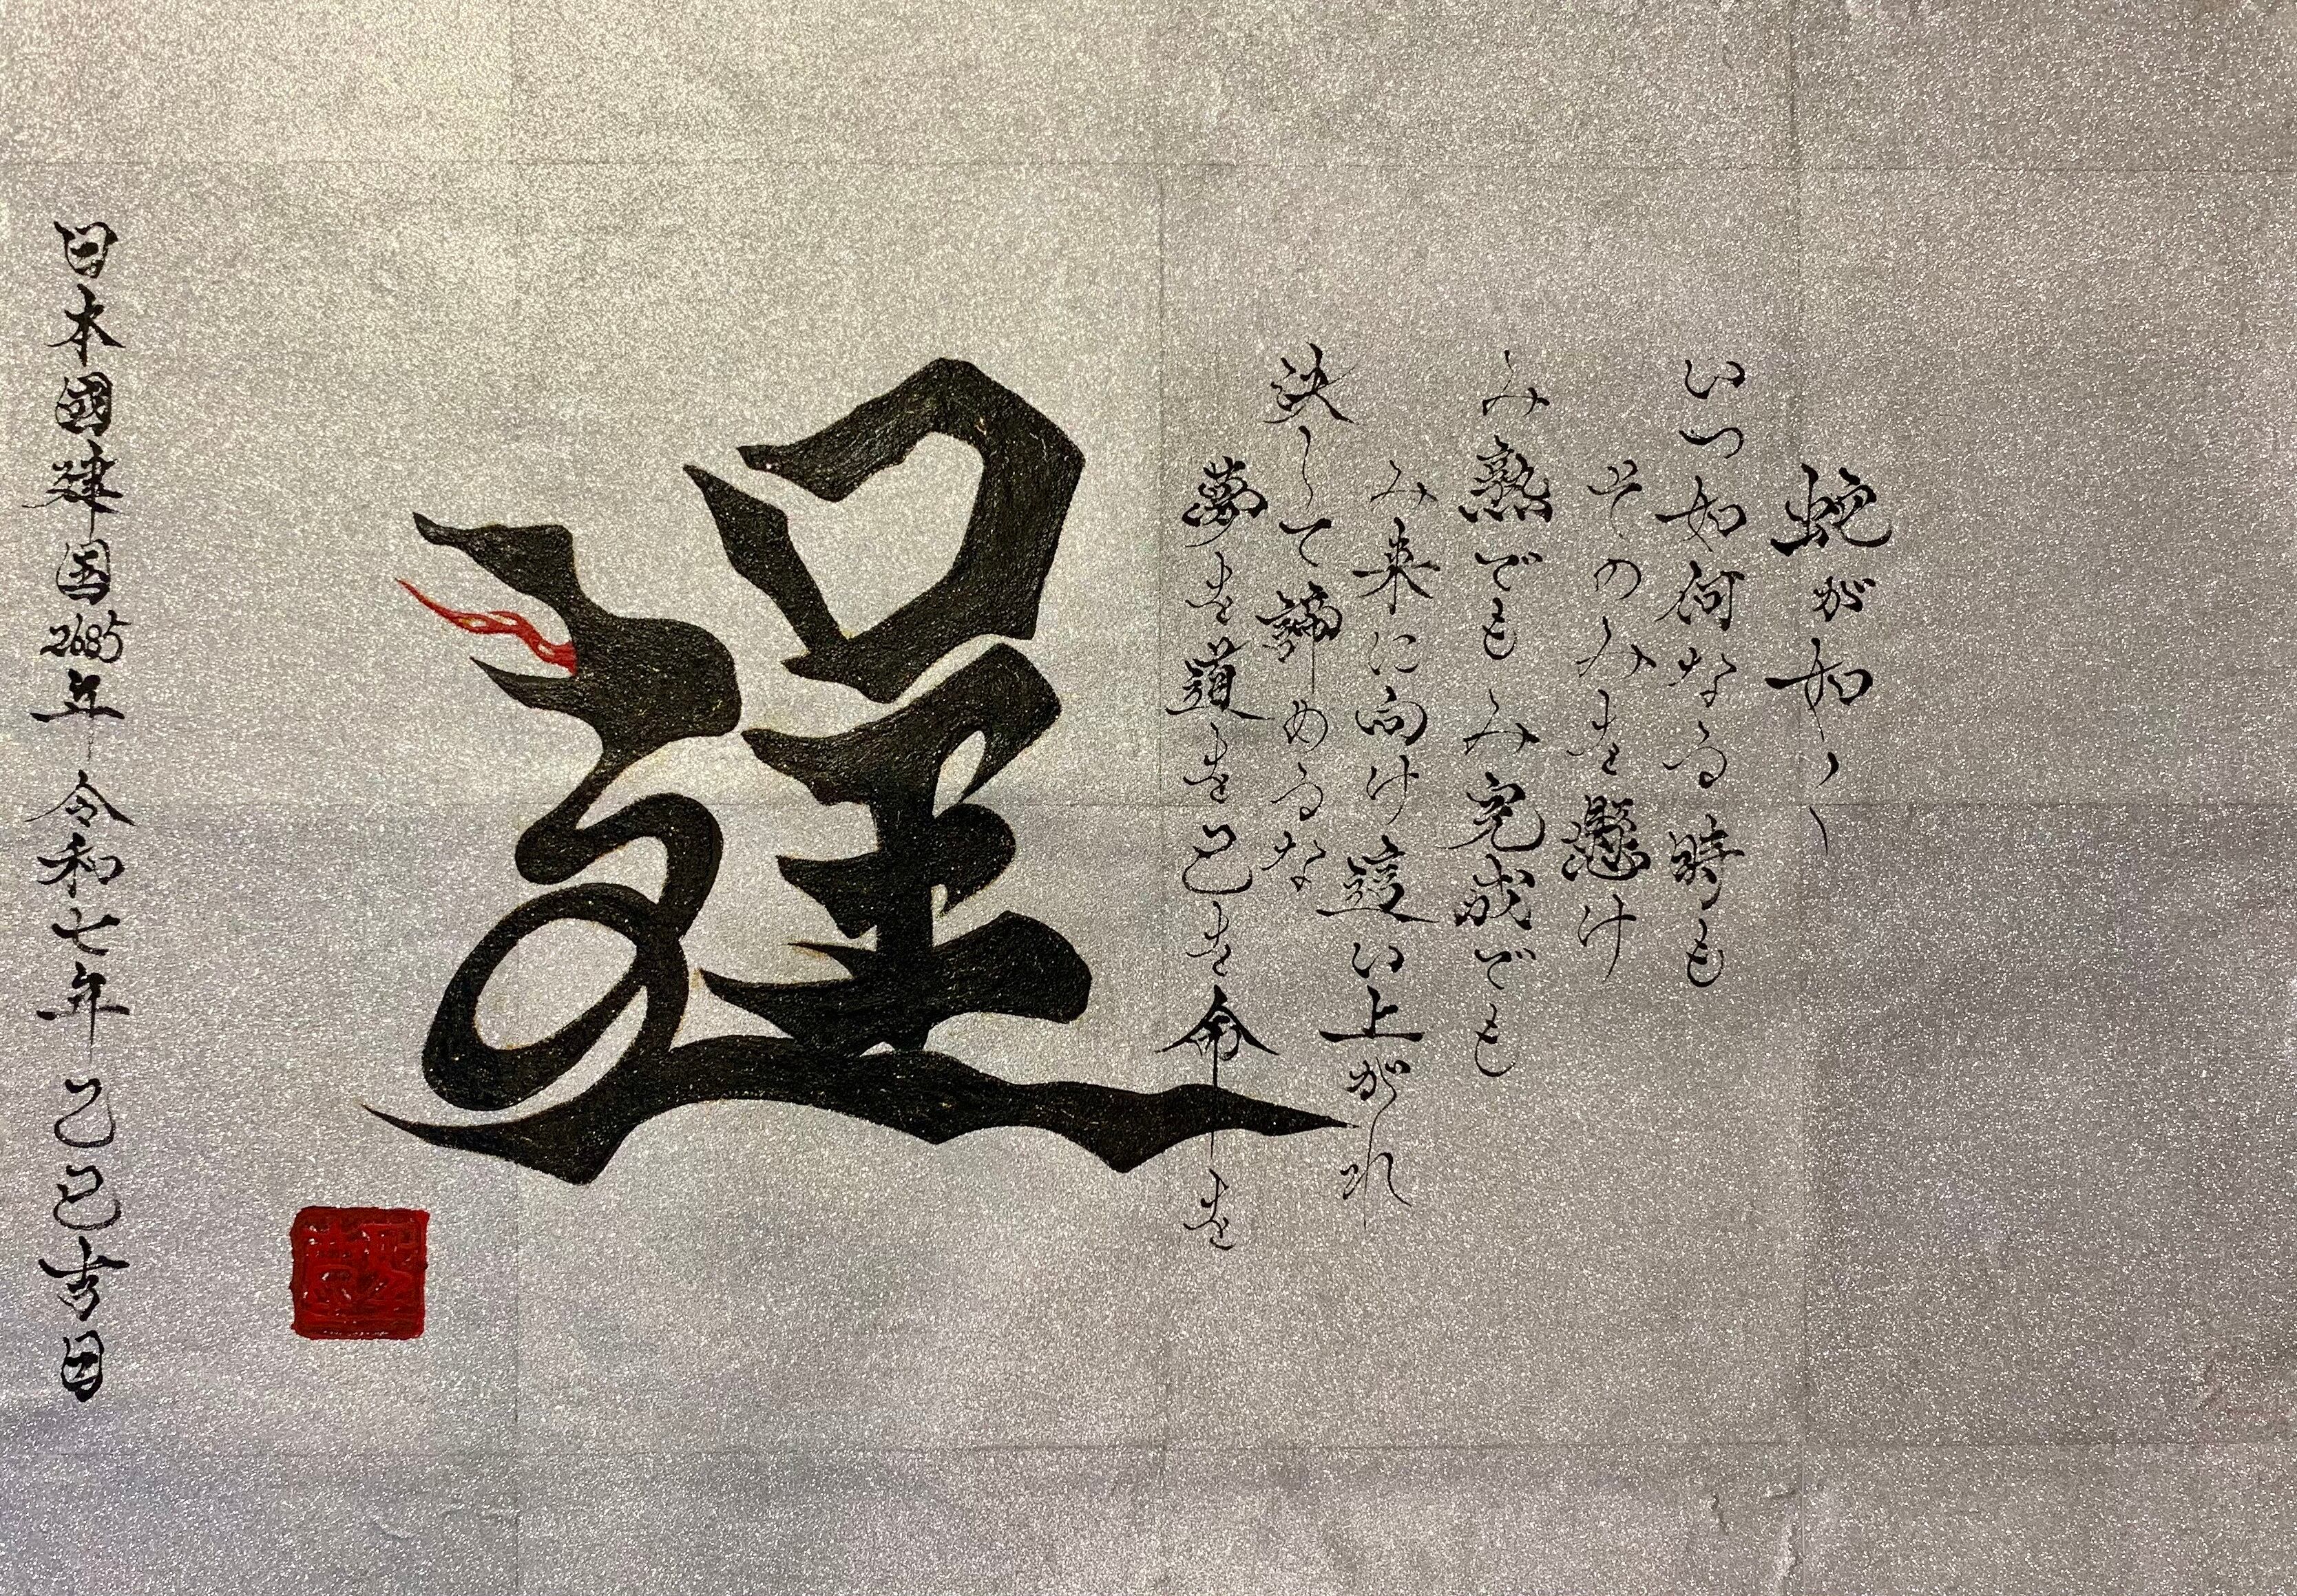 蛇が如く
いつ如何なる時も
そのみを懸け
み熟でもみ完成でも
み来に向け這い上がれ
決して諦めるな
夢を道を巳を命を
逞
日本國建国2685年 令和七年 乙巳吉日